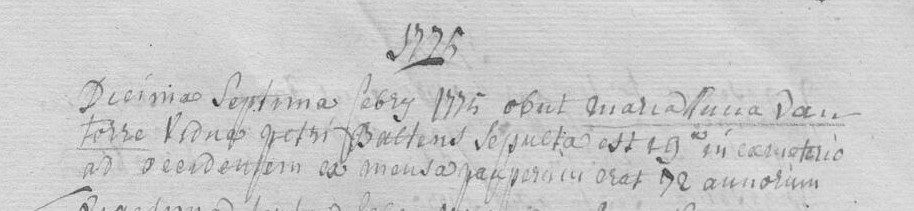 1775
Decima Septima febry 1775 obiit maria Anna Van
torre Vidua petri Baltens Sepulta est 19na in cemeterio
ad occidentem ex mensa pauperum erat 72 annorum